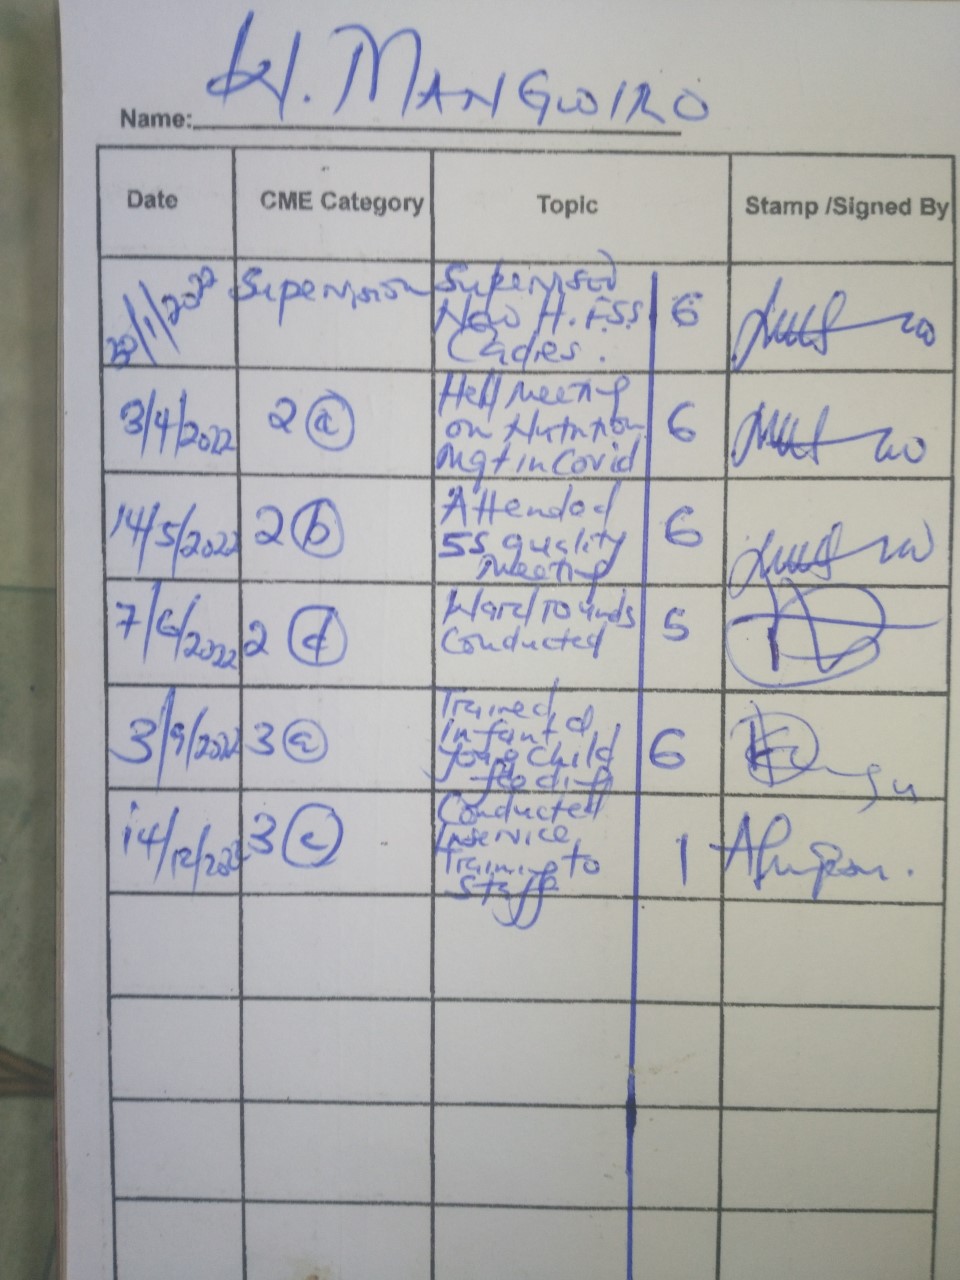 W. MANGWIRO
Name:
Date CME Category Topic Stamp /Signed By
/1/2022 Supervision Supervised 6
New H.F.S.S
Cadres.
3/4/2022 2 (a) Held Meeting 6
on Nutrition
Mgt in Covid
14/5/2022 2 (b) Attended 6
5S quality
meeting
7/6/2022 2 (d) Ward rounds 5
Conducted
3/9/2022 3 (a) Trained 6
Infant &
young Child
feeding
14/12/2022 3 (c) Conducted 1
Inservice
Training to
staff